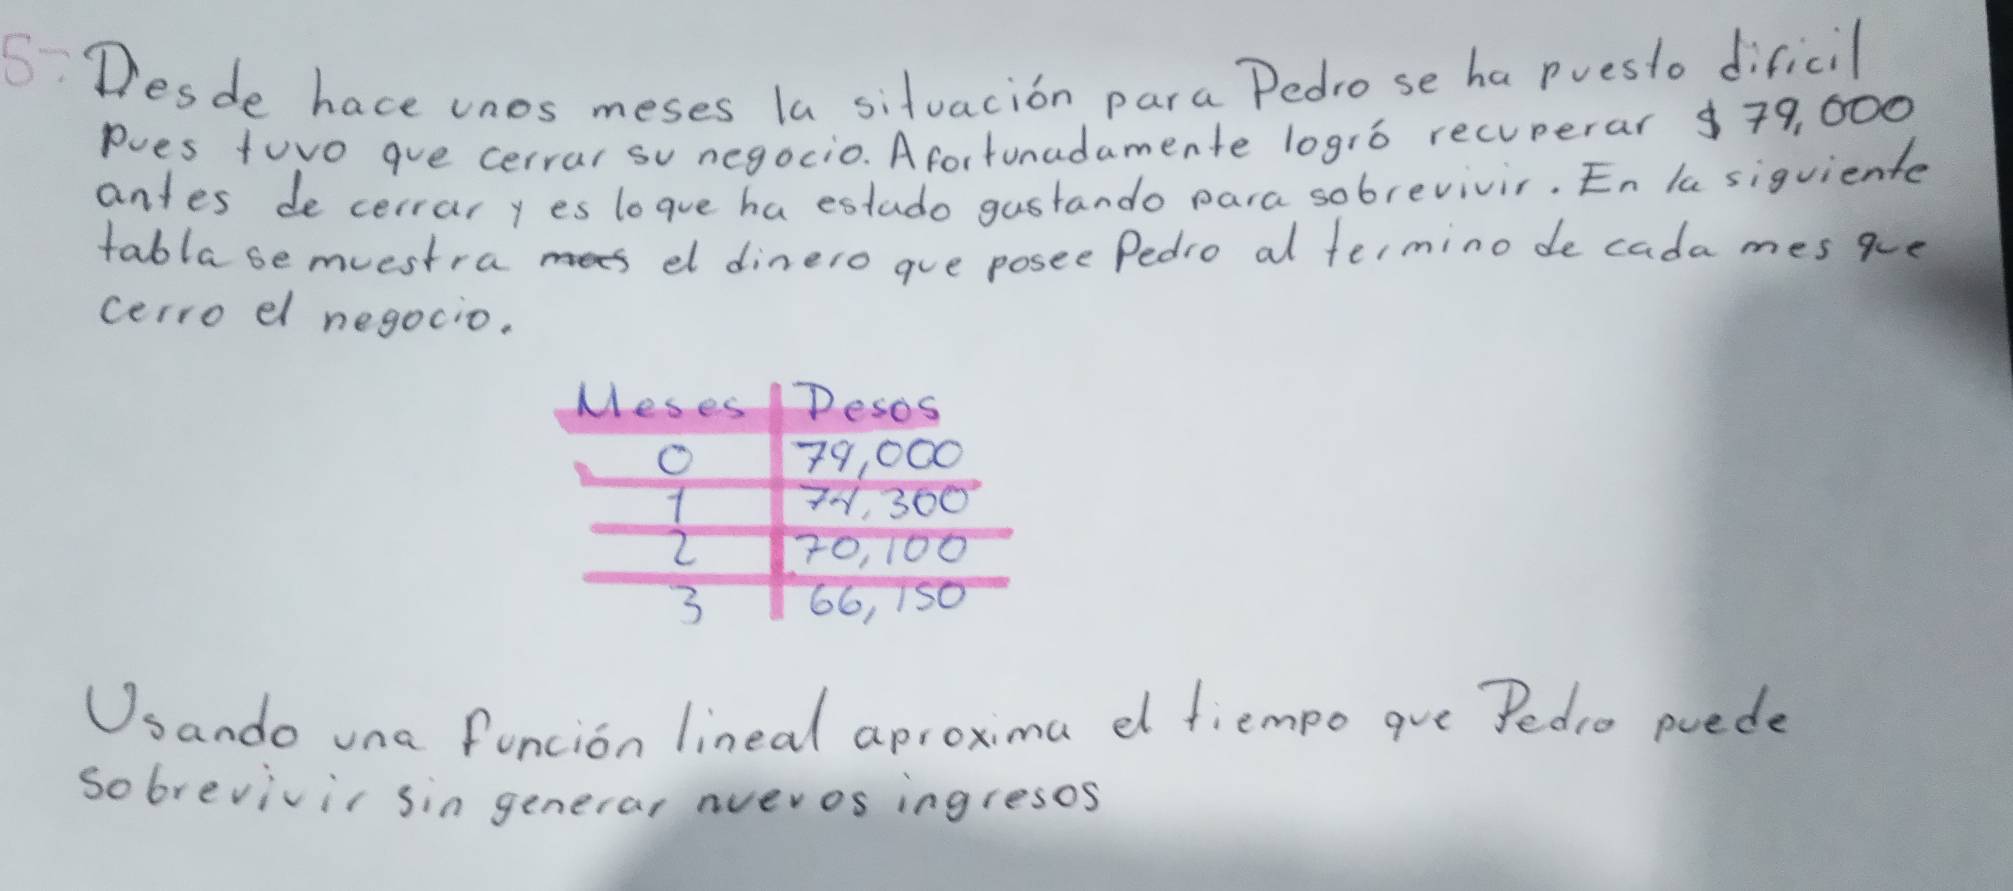 5- Desde hace unos meses la situación para Pedro se ha puesto dificil
pues tuvo que cerrar su negocio. Afortunadamente logró recuperar $ 79,000
antes de cerrar y es lo que ha estado gastando para sobrevivir. En la siguiente
tabla se muestra el dinero que posee Pedro al termino de cada mes que
cerro el negocio.
Meses Pesos
0 79,000
1 74,300
2 70,100
3 66,150
Usando una función lineal aproxima el tiempo que Pedro puede
sobrevivir sin generar nuevos ingresos